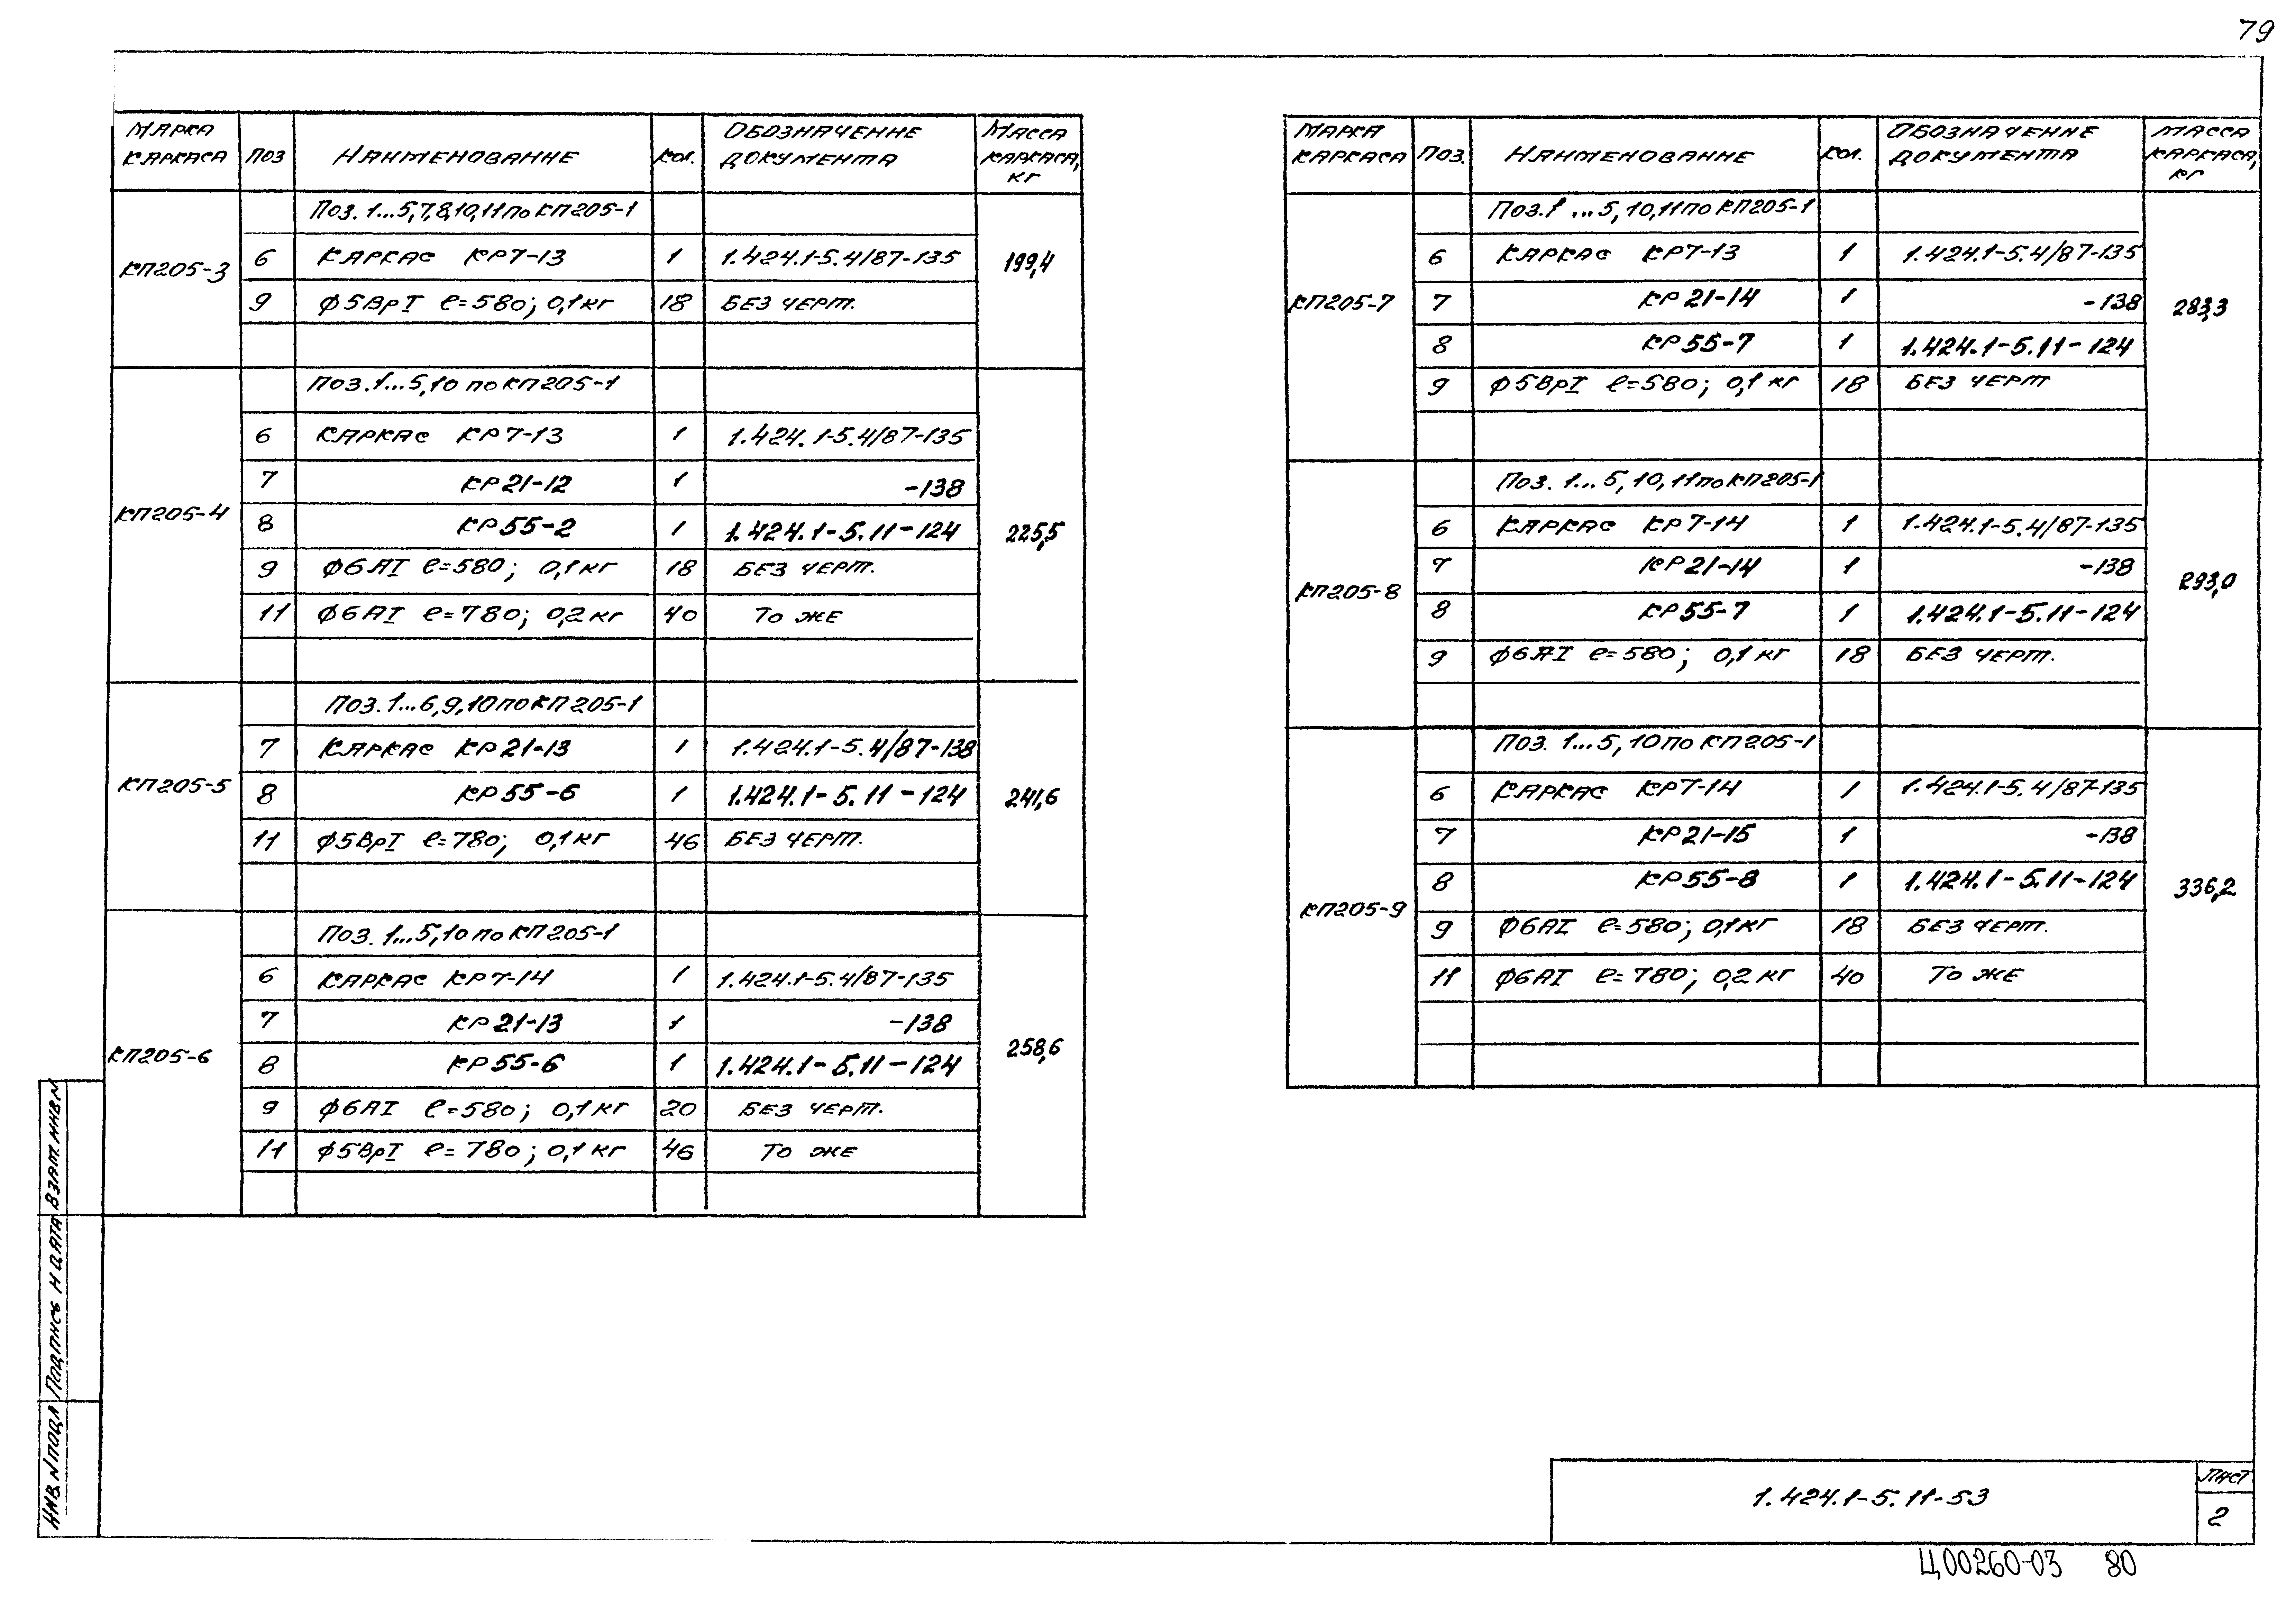 79
Марка каркаса | Поз | Наименование | Кол. | Обозначение документа | Масса каркаса, кг
КП205-3 | | Поз. 1...5,7,8,10,11 по КП205-1 | | | 199,4
6 | Каркас КР7-13 | 1 | 1.424.1-5.4/87-135
9 | ф5ВрI ℓ=580; 0,1кг | 18 | Без черт.
КП205-4 | | Поз. 1...5,10 по КП205-1 | | | 225,5
6 | Каркас КР7-13 | 1 | 1.424.1-5.4/87-135
7 | КР21-12 | 1 | -138
8 | КР55-2 | 1 | 1.424.1-5.11-124
9 | ф6АI ℓ=580; 0,1кг | 18 | Без черт.
11 | ф6АI ℓ=780; 0,2кг | 40 | То же
КП205-5 | | Поз. 1...6,9,10 по КП205-1 | | | 241,6
7 | Каркас КР21-13 | 1 | 1.424.1-5.4/87-138
8 | КР55-6 | 1 | 1.424.1-5.11-124
11 | ф5ВрI ℓ=780; 0,1кг | 46 | Без черт.
КП205-6 | | Поз. 1...5,10 по КП205-1 | | | 258,6
6 | Каркас КР7-14 | 1 | 1.424.1-5.4/87-135
7 | КР21-13 | 1 | -138
8 | КР55-6 | 1 | 1.424.1-5.11-124
9 | ф6АI ℓ=580; 0,1кг | 20 | Без черт.
11 | ф5ВрI ℓ=780; 0,1кг | 46 | То же
Марка каркаса | Поз. | Наименование | Кол. | Обозначение документа | Масса каркаса, кг
КП205-7 | | Поз. 1...5,10,11 по КП205-1 | | | 283,3
6 | Каркас КР7-13 | 1 | 1.424.1-5.4/87-135
7 | КР21-14 | 1 | -138
8 | КР55-7 | 1 | 1.424.1-5.11-124
9 | ф5ВрI ℓ=580; 0,1кг | 18 | Без черт
КП205-8 | | Поз. 1...5,10,11 по КП205-1 | | | 293,0
6 | Каркас КР7-14 | 1 | 1.424.1-5.4/87-135
7 | КР21-14 | 1 | -138
8 | КР55-7 | 1 | 1.424.1-5.11-124
9 | ф6АI ℓ=580; 0,1кг | 18 | Без черт.
КП205-9 | | Поз. 1...5,10 по КП205-1 | | | 336,2
6 | Каркас КР7-14 | 1 | 1.424.1-5.4/87-135
7 | КР21-15 | 1 | -138
8 | КР55-8 | 1 | 1.424.1-5.11-124
9 | ф6АI ℓ=580; 0,1кг | 18 | Без черт.
11 | ф6АI ℓ=780; 0,2кг | 40 | То же
Инв. N подл | Подпись и дата | Взам. инв. N
1.424.1-5.11-53
Лист
2
Ц00260-03 80